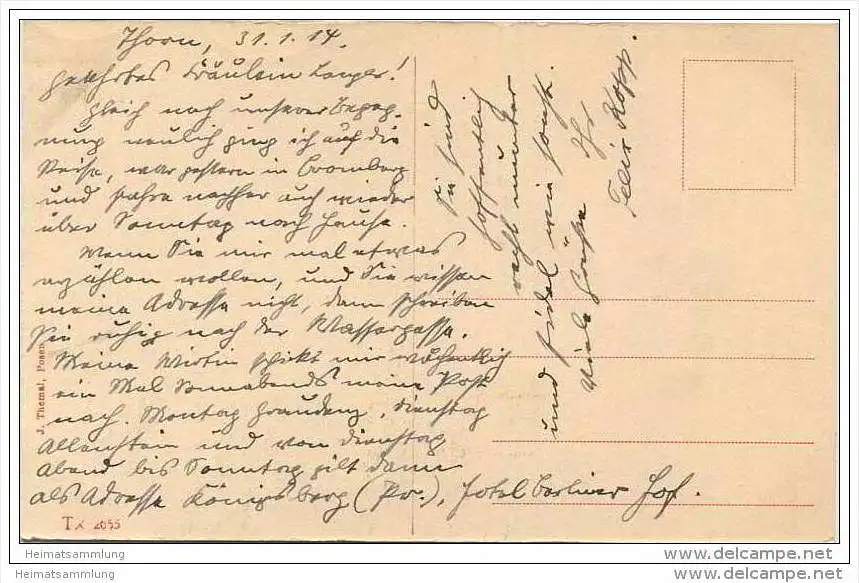 Thorn, 31.1.14.
Geehrtes Fräulein Langer!
Gleich nach unserer Begeg-
nung neulich ging ich auf die
Reise, war gestern in Bromberg
und fahre nachher auch wieder
über Sonntag nach Hause.
Wenn Sie mir mal etwas
erzählen wollen, und Sie wissen
meine Adresse nicht, dann schreiben
Sie ruhig nach der Wassergasse.
Meine Wirtin schickt mir wöchentlich
ein Mal Sonnabends meine Post
nach. Montag Graudenz, Dienstag
Allenstein und von Dienstag
Abend bis Sonntag gilt dann
als Adresse Königsberg (Pr.), Hotel Berliner Hof.
Sie sind
hoffentlich
recht munter
und fidel wie sonst.
Viele Grüße Ihr
Felix Kopp.
J. Themal, Posen
TX 2055
Heimatsammlung
Heimatsammlung
www.delcampe.net
www.delcampe.net